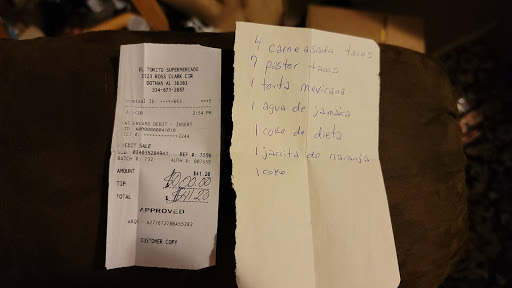 EL TORITO SUPERMERCADO
1123 ROSS CLARK CIR
DOTHAN AL 36303
334-671-2857
Terminal ID:
2:54 PM
DEBIT - INSERT
CREDIT SALE
REF #: 7559
BATCH #: 732
AUTH #:
AMOUNT $41.20
TIP $00.00
TOTAL $41.20
APPROVED
CUSTOMER COPY
4 carne asada tacos
7 pastor tacos
1 torta mexicana
1 agua de jamaica
1 coke de dieta
1 jarrita de naranja
1 coke